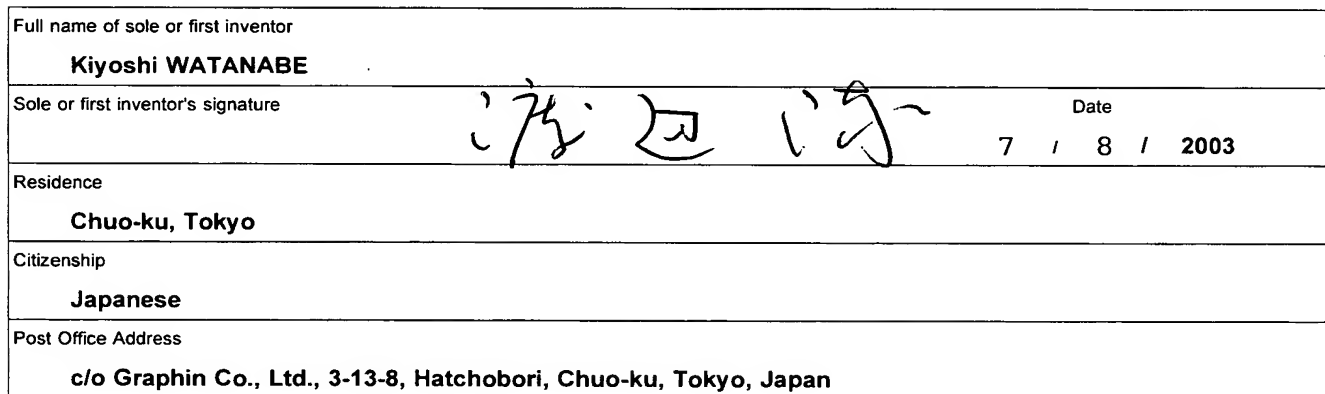 Full name of sole or first inventor
Kiyoshi WATANABE
Sole or first inventor's signature 渡 Date
7 / 8 / 2003
Residence
Chuo-ku, Tokyo
Citizenship
Japanese
Post Office Address
c/o Graphin Co., Ltd., 3-13-8, Hatchobori, Chuo-ku, Tokyo, Japan